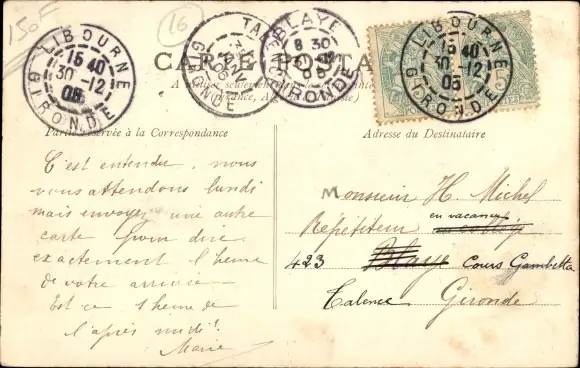 150F
16
LIBOURNE
15 40
30 -12
05
GIRONDE
TA
GIRONDE
BLAYE
8 30
05
GIRONDE
LIBOURNE
15 40
30 -12
05
GIRONDE
5
CARTE POSTA
Partie réservée à la Correspondance
Adresse du Destinataire
C'est entendu, nous
vous attendons lundi
mais envoyez une autre
carte pour dire
exactement l'heure
de votre arrivée
Est ce 1 heure de
l'après midi!
Marie
Monsieur H. Michel
en vacances
Répétiteur au collège
423 Blaye Cours Gambetta
Talence Gironde